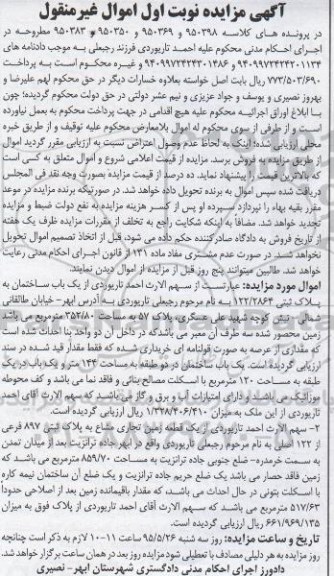 آگهی مزایده نوبت اول اموال غیر منقول
در پرونده های کلاسه ۹۵۰۳۹۸ و ۹۵۰۳۶۹ و ۹۵۰۳۵۰ و ۹۵۰۳۸۳ مطروحه در
اجرای احکام مدنی محکوم علیه احمد تاریوردی فرزند رجبعلی به موجب دادنامه های
۹۴۰۹۹۷۲۴۲۳۰۱۴۸۶ و ۹۴۰۹۹۷۲۴۲۴۲۰۱۱۳۴ و غیره محکوم است به پرداخت
۷۷۳/۵۰۳/۶۹۰ ریال بابت اصل خواسته بعلاوه خسارات دیگر در حق محکوم لهم علیرضا و
بهروز نصیری و یوسف و جواد عزیزی و نیم عشر دولتی در حق دولت محکوم گردیده؛ چون
با ابلاغ اوراق اجرائیه محکوم علیه هیچ اقدامی در جهت پرداخت محکوم به بعمل نیاورده
است و از طرفی از سوی محکوم له اموال بلامعارض محکوم علیه توقیف و از طریق خبره
محلی ارزیابی شده؛ اینک به لحاظ عدم وصول اعتراض نسبت به ارزیابی مقرر گردید اموال
از طریق مزایده به فروش برسد. مزایده از قیمت اعلامی شروع و اموال متعلق به کسی است
که بالاترین قیمت را پیشنهاد نماید. ده درصد از قیمت مزایده بصورت وجه نقد فی المجلس
دریافت شده سپس اموال به برنده تحویل داده خواهد شد. در صورتیکه برنده مزایده در موعد
مقرر بقیه بهاء را نپردازد سپرده او پس از کسر هزینه مزایده به نفع دولت ضبط و مزایده
تجدید خواهد شد. مضافا به اینکه شکایت راجع به تخلف از مقررات مزایده ظرف یک هفته
از تاریخ فروش به دادگاه صادر کننده حکم داده می شود، قبل از اتخاذ تصمیم اموال تحویل
نخواهد شد. در صورت عدم مشتری مفاد ماده ۱۳۱ از قانون اجرای احکام مدنی رعایت
خواهد شد. طالبین میتوانند پنج روز قبل از مزایده از اموال دیدن نمایند.
اموال مورد مزایده: عبارتست از سهم الارث احمد تاریوردی از یک باب ساختمان به
پلاک ثبتی ۱۲۲/۲۸۶۴ به نام مرحوم رجبعلی تاریوردی به آدرس ابهر- خیابان طالقانی
شمالی - نبش کوچه شهید علی عسگری پلاک ۵۷ به مساحت ۳۵۲/۸۰ مترمربع می باشد
زمین محصور شده سه طرف آن معبر می باشد که در داخل آن دو واحد بنا احداث شده است
که مقداری از عرصه به صورت قولنامه ای خریداری شده که فقط مقدار قید شده در سند
ارزیابی گردیده است. یک باب ساختمان در دو طبقه به مساحت ۱۴۴ متر و یک باب در یک
طبقه به مساحت ۱۲۰ مترمربع با اسکلت مصالح بنائی و فاقد نما می باشد و کف محوطه
موزائیک می باشد و دارای امتیازات آب و برق و گاز می باشد که سهم الارث آقای احمد
تاریوردی از این ملک به میزان ۱/۳۴۸/۴۰۶/۴۱۰ ریال ارزیابی گردیده است.
۲- سهم الارث احمد تاریوردی از یک قطعه زمین تجاری مشاع به پلاک ثبتی ۸۹۷ فرعی
از ۱۲۲ اصلی به نام مرحوم رجبعلی تاریوردی واقع در ابهر جاده ترانزیت بعد از میدان تمدن
به سمت خرمدره- ضلع جنوبی جاده ترانزیت به مساحت ۸۵۹/۷۰ مترمربع می باشد که
زمین فاقد حصار می باشد یک ضلع حریم جاده ترانزیت و یک ضلع آن ساختمان نیمه کاره
با اسکلت بتونی در حال احداث می باشد، که مقدار باقیمانده زمین بعد از اصلاحی حدودا
۵۱۷/۶۳ مترمربع است که سهم الارث آقای احمد تاریوردی از پلاک فوق به میزان
۶۶۱/۹۶۹/۱۳۵ ریال ارزیابی گردیده است.
تاریخ و ساعت مزایده: روز سه شنبه ۹۵/۵/۲۶ ساعت ۱۱-۱۰ لازم به ذکر است چنانچه
روز مزایده به هر دلیلی مصادف با تعطیلی شود مزایده روز بعد در همان ساعت برگزار خواهد شد.
دادورز اجرای احکام مدنی دادگستری شهرستان ابهر- نصیری